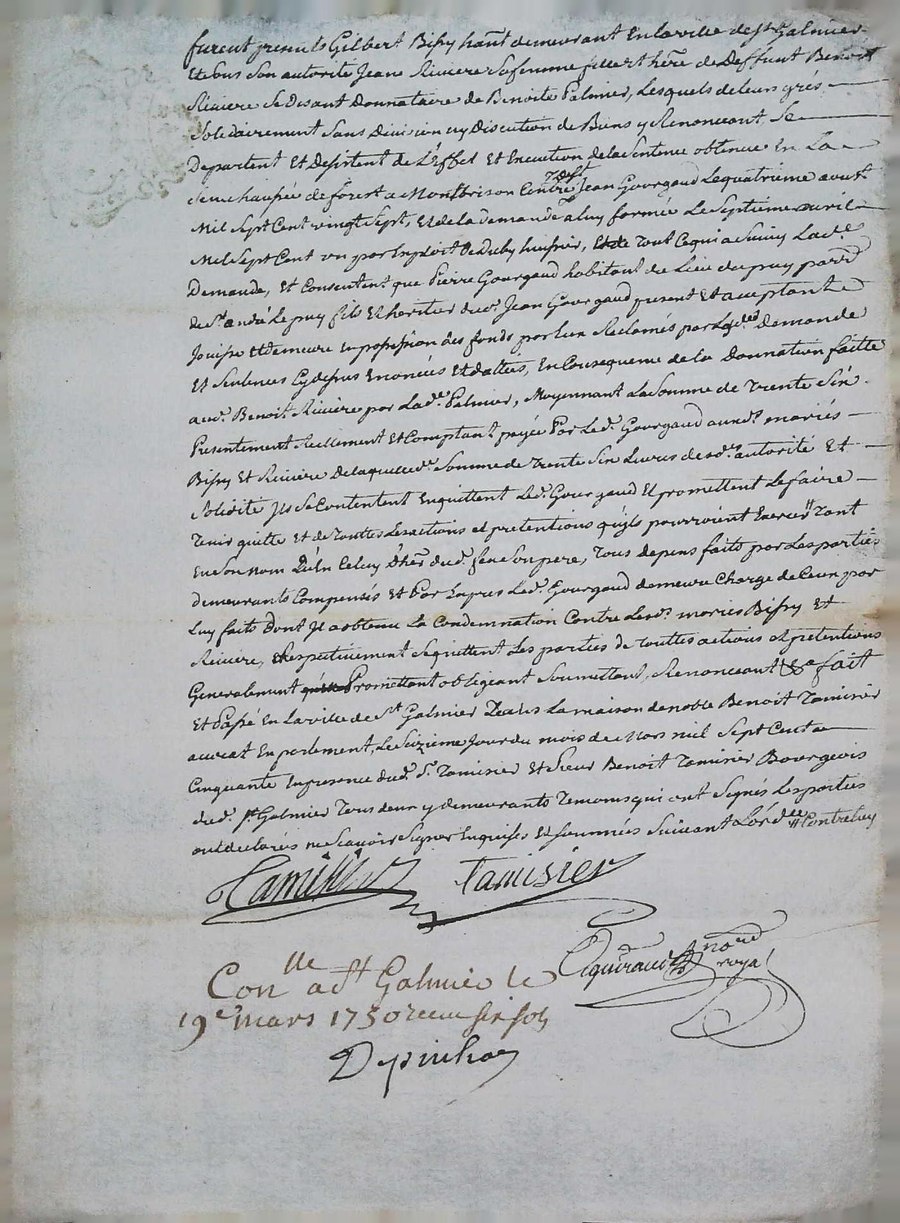 furent presents Gilbert Bissy habnt demeurant En la ville de St Galmier
Et sous son autorité Jeane Riviere sa femme fille et here de Deffunt Benoit
Riviere se disant Donnataire de Benoite Palmier, Lesquels de leurs grés
Solidairement sans Division ny Discution de Biens y Renonceant se
Departent Et Desistent de L'Effet Et Execution de la sentence obtenue En La
Senechaussée de forest a Montbrison Contre Jean Gourgaud Le quatrieme aoust
Mil sept Cent vingt sept, Et de la Demande a luy formée Le Septieme avril
Mil Sept Cent un par Exploit De huissier, Et de Tout Ce qui a Suivy Lade
Demande, Et Consentent que Pierre Gourgaud habitant du Lieu du puy parr
de St andré Le puy fils Et heritier dud. Jean Gourgaud present Et acceptant
Jouisse Et demeure En possession des fonds par Eux Reclamés par Lesd. Demande
Et Sentences Cy dessus Enoncées Et dattées, En Consequence de la Donnation faitte
aud. Benoit Riviere par Lad. Palmier, Moyennant La Somme de Trente Six
Presentement Reellement Et Comptant payée Par Led. Gourgaud auxd. mariés
Bissy Et Riviere De laquelle Somme de Trente Six Livres desd. autorité Et
Solidité Ils se Contentent En quittent Led. Gourgaud Et promettent Le faire
Tenir quitte Et de Touttes Les actions et pretentions qu'ils pourroient Exercer Tant
En Son Nom qu'En Celuy D'her dud. feu Son pere, Tous depens faits par Les parties
demeurants Compensés Et Par Exprés Led. Gourgaud demeure Chargé de Ceux par
Luy faits dont Il a obtenu La Condemnation Contre Lesd. mariés Bissy Et
Riviere, Respectivement Se quittent Les parties de Touttes actions Et pretentions
Generalement Promettant obligeant Soumettant, Renonceant &a fait
Et Passé En La ville de St Galmier Dans La maison de noble Benoit Tamisier
avocat En parlement, Le Seizieme Jour du mois de Mars mil Sept Cent
Cinquante En presence dud. Sr. Tamisier Et Sieur Benoit Tamisier Bourgeois
dud. St. Galmier Tous deux y demeurants Temoins qui ont Signés Les parties
ont declarés ne Scavoir Signer Enquises Et Sommées Suivant L'ordce
Tamisier Tamisier
nore
royal
Conlle a St Galmier le
19e mars 1750 receu six sols